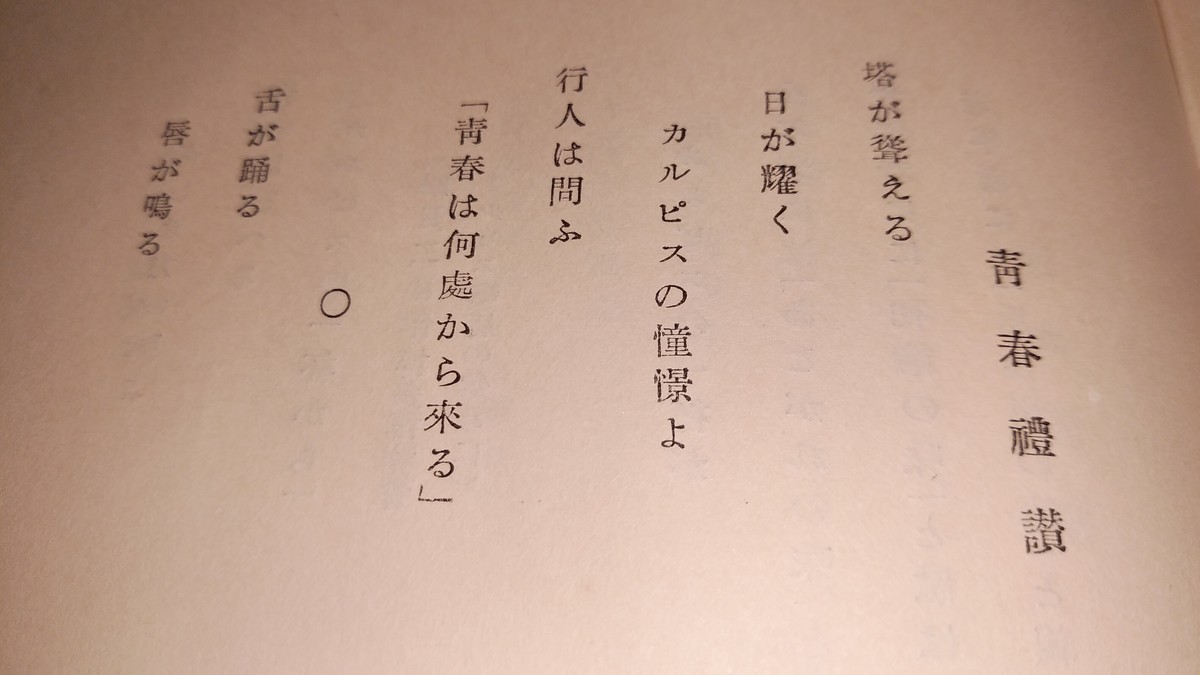 靑春禮讃
塔が聳える
日が耀く
カルピスの憧憬よ
行人は問ふ
「靑春は何處から來る」
〇
舌が踊る
唇が鳴る